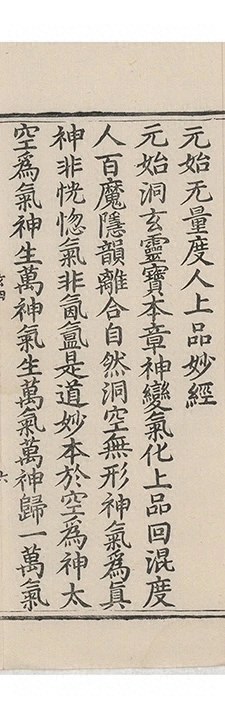 元始无量度人上品妙經
元始洞玄靈寶本章神變氣化上品回混度
人百魔隱韻離合自然洞空無形神氣爲眞
神非恍惚氣非氤氳是道妙本於空爲神太
空爲氣神生萬神氣生萬氣萬神歸一萬氣